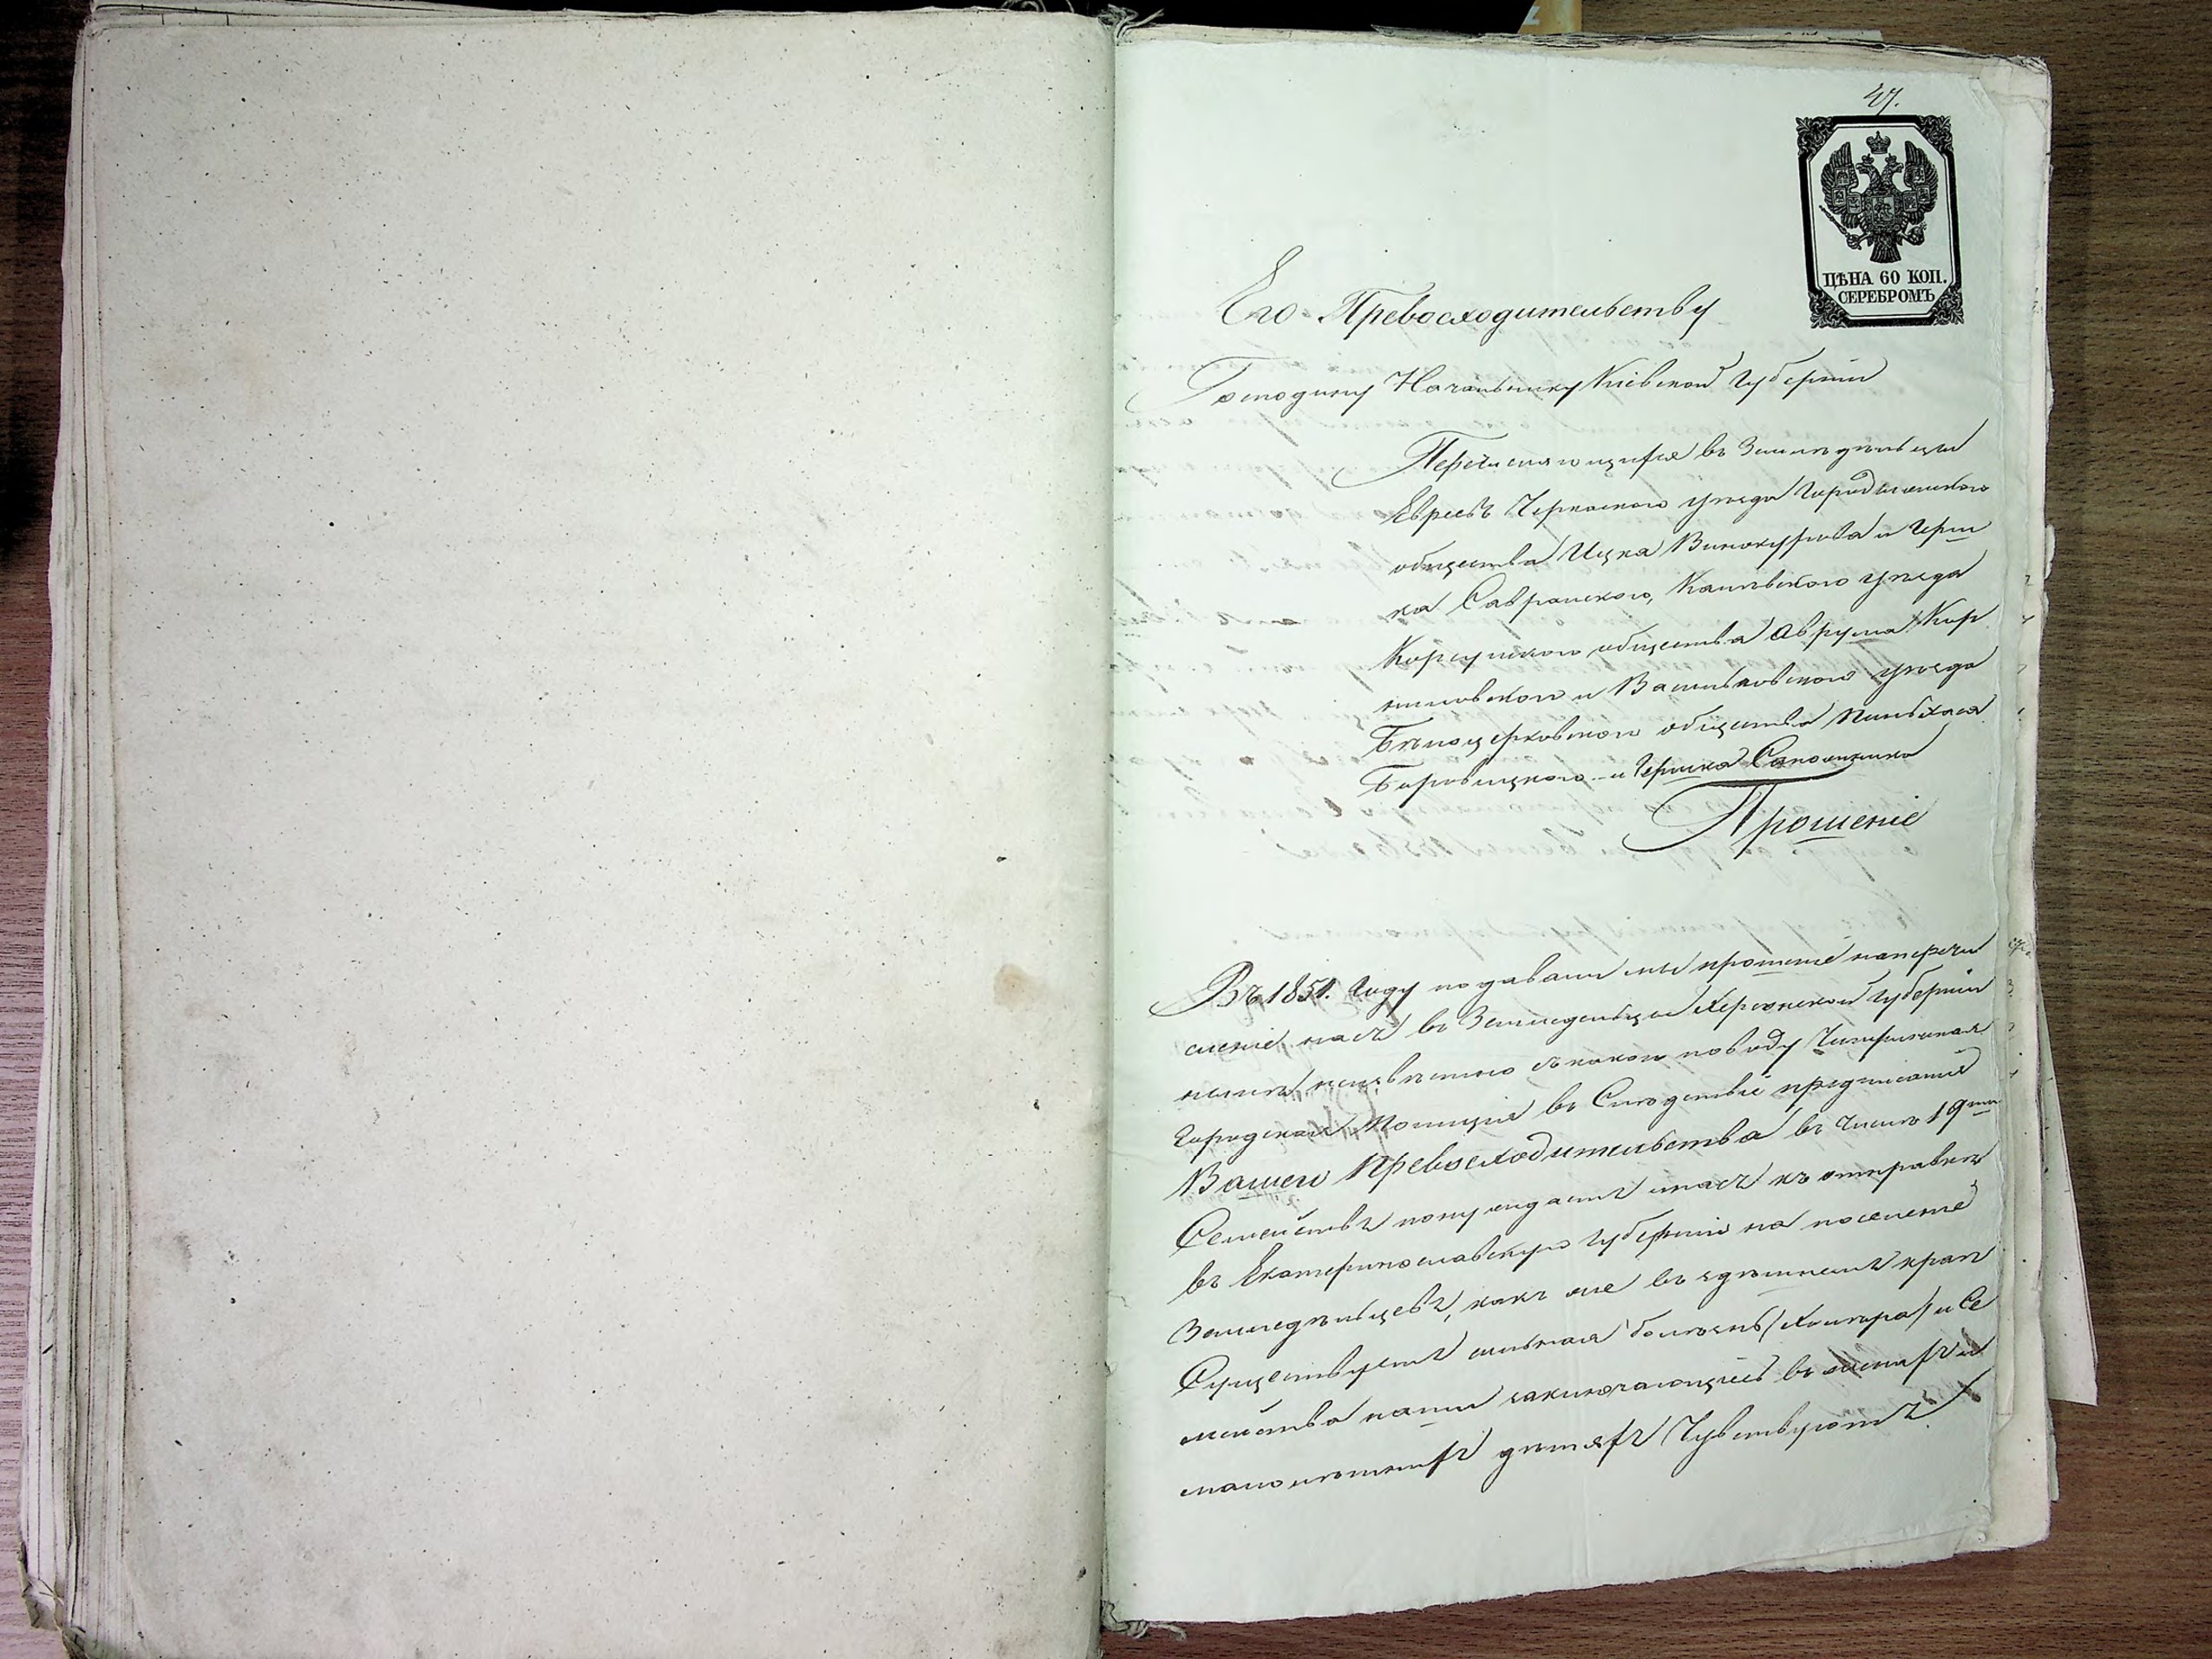 47.
ЦѢНА 60 КОП.
СЕРЕБРОМЪ
Его Превосходительству
Господину Начальнику Кіевской Губерніи
Перечисляющихся въ Земледѣльцы
Евреевъ Черкаского уѣзда Городищенского
общества Ицка Винокурова и Герш
ка Савранского, Каневского уѣзда
Корсунского общества Аврума Кор
ниловского и Васильковского уѣзда
Бѣлоцерковского общества Пиньхаса
Боровицкого и Гершка Сапожника
Прошеніе
Въ 1851. Году подавали мы прошеніе наперечи
сленіе насъ въ Земледельцы Херсонской Губерніи
нынѣ неизвѣстно съ какого поводу Чигиринская
Городская Полиція въ Слѣдствіе предписанія
Вашего Превосходительства въ числѣ 19ти
Семействъ понуждаетъ насъ къ отправкѣ
въ Екатеринославскую Губернію на поселеніе
Земледѣльцевъ, какъ же въ здѣшнемъ краѣ
Существуетъ сильная болѣзнь (Холера) и Се
мейства наши заключающіесь въ женахъ и
малолѣтнихъ дѣтяхъ Чувствуютъ